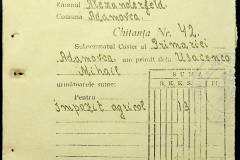 Raionul Alexanderfeld
Comuna Adamovca
Chitanța Nr. 42.
Subsemnatul Casier al Primăriei
Adamovca, am primit dela Usacenco
Mihail
următoarele sume:
SUMA
Pentru
Impozit agricol 13